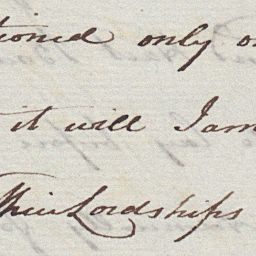 tioned only o
it will I am
Their Lordships